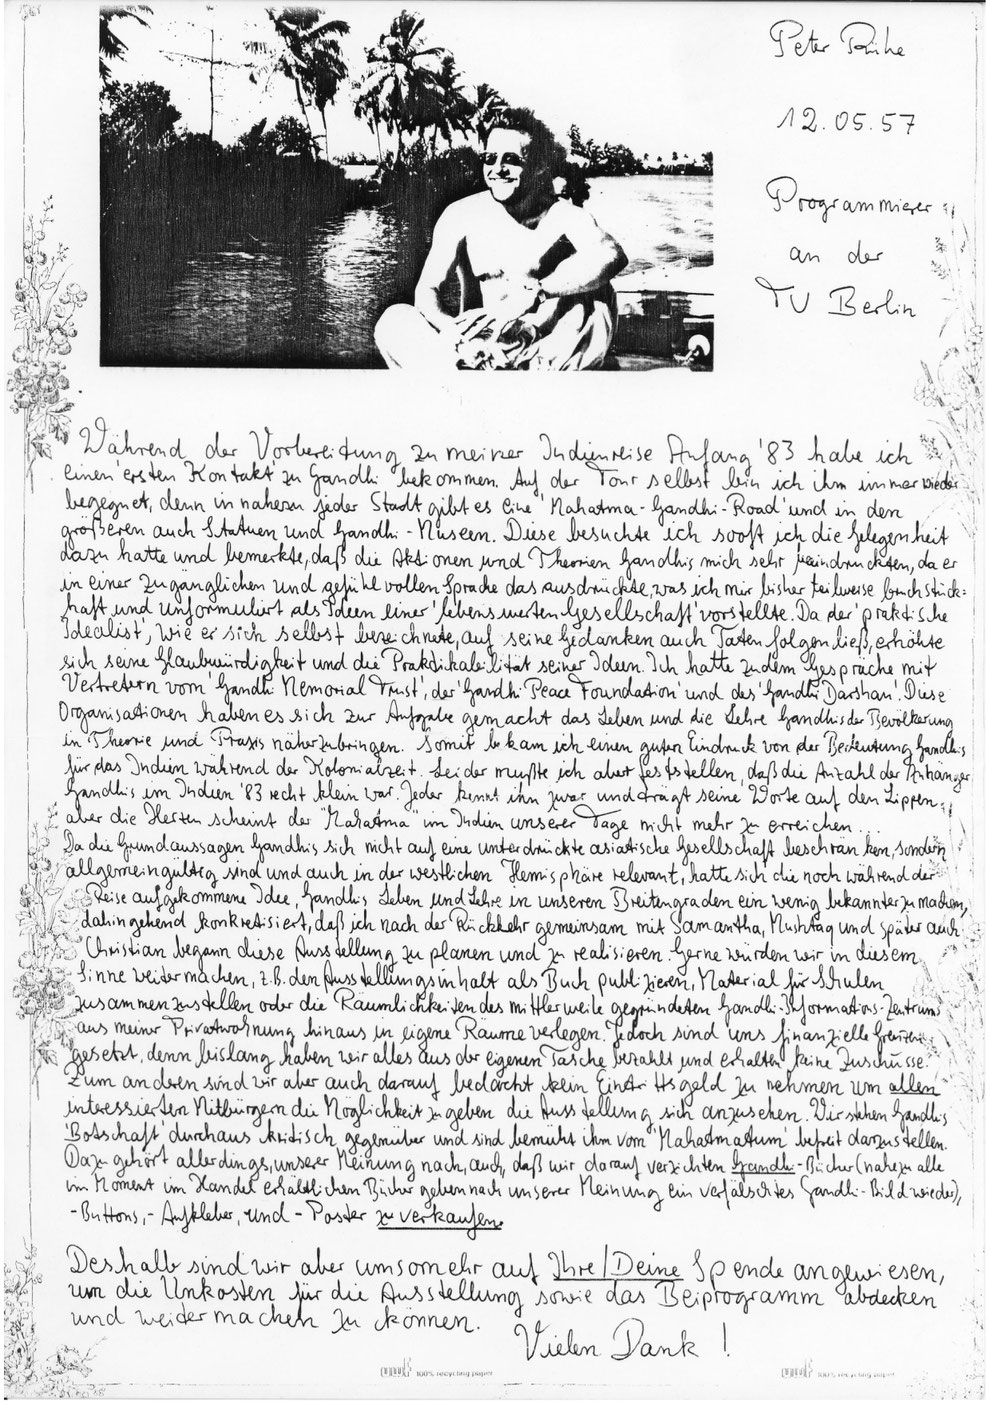 Peter Rühe
12.05.57
Programmierer
an der
TU Berlin
Während der Vorbereitung zu meiner Indienreise Anfang '83 habe ich
einen 'ersten Kontakt' zu Gandhi bekommen. Auf der Tour selbst bin ich ihm immer wieder
begegnet, denn in nahezu jeder Stadt gibt es eine 'Mahatma-Gandhi-Road' und in den
größeren auch Statuen und Gandhi-Museen. Diese besuchte ich sooft ich die Gelegenheit
dazu hatte und bemerkte, daß die Aktionen und Theorien Gandhis mich sehr beeindruckten, da er
in einer zugänglichen und gefühlvollen Sprache das ausdrückte, was ich mir bisher teilweise bruchstück=
haft und unformuliert als Ideen einer 'lebenswerten Gesellschaft' vorstellte. Da der 'praktische
Idealist', wie er sich selbst bezeichnete, auf seine Gedanken auch Taten folgen ließ, erhöhte
sich seine Glaubwürdigkeit und die Praktikabilität seiner Ideen. Ich hatte zudem Gespräche mit
Vertretern vom 'Gandhi Memorial Trust', der 'Gandhi Peace Foundation' und des 'Gandhi Darshan'. Diese
Organisationen haben es sich zur Aufgabe gemacht das Leben und die Lehre Gandhis der Bevölkerung
in Theorie und Praxis näherzubringen. Somit bekam ich einen guten Eindruck von der Bedeutung Gandhis
für das Indien während der Kolonialzeit. Leider mußte ich aber feststellen, daß die Anzahl der Anhänger
Gandhis im Indien '83 recht klein war. Jeder kennt ihn zwar und trägt seine Worte auf den Lippen,
aber die Herzen scheint der "Mahatma" im Indien unserer Tage nicht mehr zu erreichen...
Da die Grundaussagen Gandhis sich nicht auf eine unterdrückte asiatische Gesellschaft beschränken, sondern
allgemeingültig sind und auch in der westlichen Hemisphäre relevant, hatte sich die noch während der
Reise aufgekommene Idee, Gandhis Leben und Lehre in unseren Breitengraden ein wenig bekannter zu machen,
dahingehend konkretisiert, daß ich nach der Rückkehr gemeinsam mit Samantha, Mushtaq und später auch
Christian begann diese Ausstellung zu planen und zu realisieren. Gerne würden wir in diesem
Sinne weitermachen, z.B. den Ausstellungsinhalt als Buch publizieren, Material für Schulen
zusammenzustellen oder die Räumlichkeiten des mittlerweile gegründeten Gandhi-Informations-Zentrums
aus meiner Privatwohnung hinaus in eigene Räume verlegen. Jedoch sind uns finanzielle Grenzen
gesetzt, denn bislang haben wir alles aus der eigenen Tasche bezahlt und erhalten keine Zuschüsse.
Zum anderen sind wir aber auch darauf bedacht kein Eintrittsgeld zu nehmen um allen
interessierten Mitbürgern die Möglichkeit zu geben die Ausstellung sich anzusehen. Wir stehen Gandhis
'Botschaft' durchaus kritisch gegenüber und sind bemüht ihm vom 'Mahatmatum' befreit darzustellen.
Dazu gehört allerdings, unserer Meinung nach, auch, daß wir darauf verzichten Gandhi-Bücher (nahezu alle
im Moment im Handel erhältlichen Bücher geben nach unserer Meinung ein verfälschtes Gandhi-Bild wieder),
-Buttons, -Aufkleber, und -Poster zu verkaufen.
Deshalb sind wir aber umsomehr auf Ihre/Deine Spende angewiesen,
um die Unkosten für die Ausstellung sowie das Beiprogramm abdecken
und weitermachen zu können.
Vielen Dank!
uwf 100% recycling paper
uwf 100% recycling paper